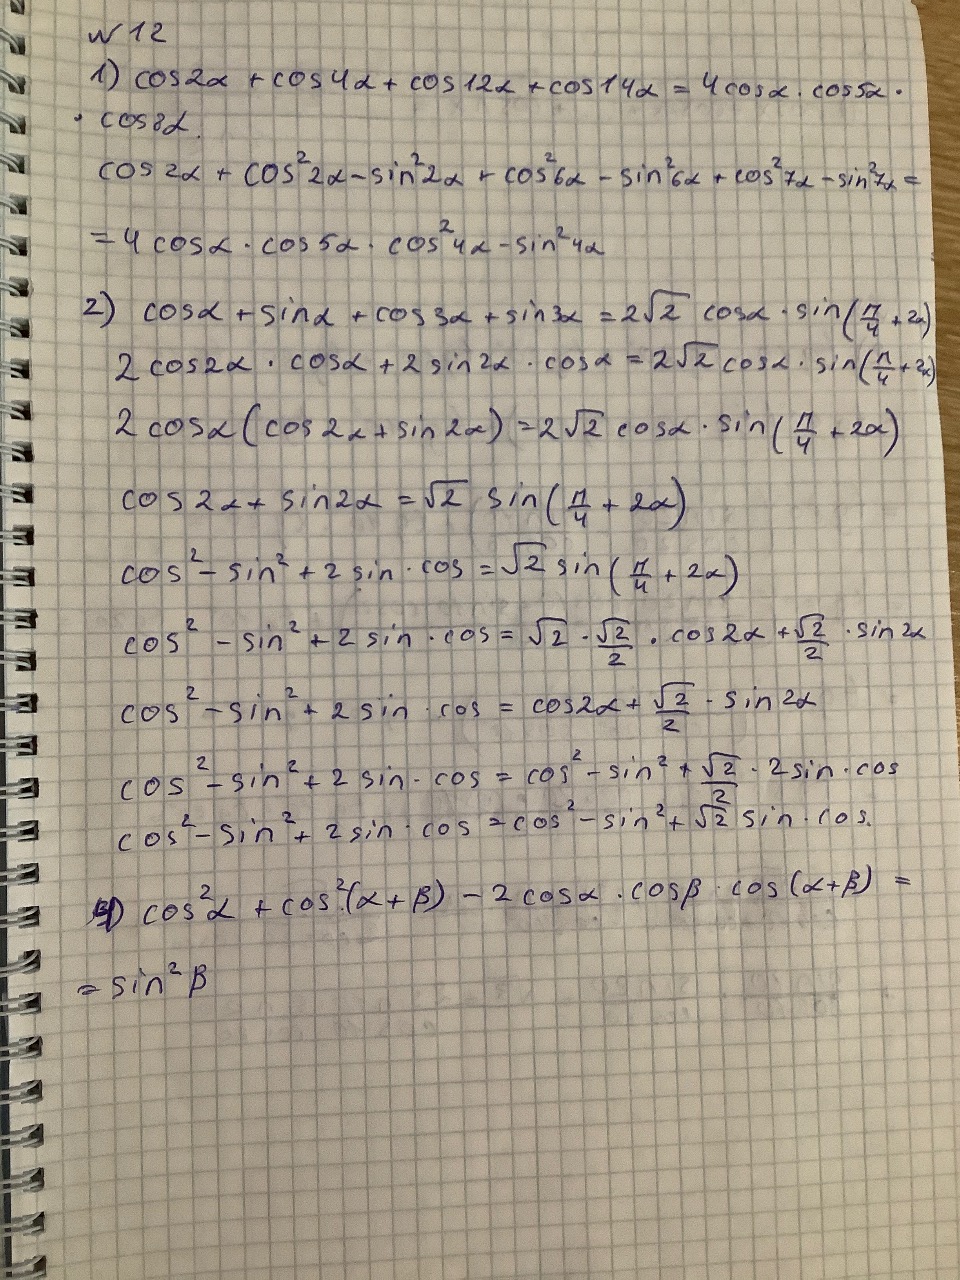 N 12
1) cos2α + cos4α + cos12α + cos14α = 4cosα · cos5α ·
· cos8α.
cos2α + cos²2α - sin²2α + cos²6α - sin²6α + cos²7α - sin²7α =
= 4 cosα · cos5α · cos²4α - sin²4α
2) cosα + sinα + cos3α + sin3α = 2√2 cosα · sin(π/4 + 2α)
2 cos2α · cosα + 2 sin2α · cosα = 2√2 cosα · sin(π/4 + 2α)
2 cosα (cos2α + sin2α) = 2√2 cosα · sin(π/4 + 2α)
cos2α + sin2α = √2 sin(π/4 + 2α)
cos² - sin² + 2 sin · cos = √2 sin(π/4 + 2α)
cos² - sin² + 2 sin · cos = √2 · √2/2 · cos2α + √2/2 · sin2α
cos² - sin² + 2 sin · cos = cos2α + √2/2 · sin2α
cos² - sin² + 2 sin · cos = cos² - sin² + √2/2 · 2 sin · cos
cos² - sin² + 2 sin · cos = cos² - sin² + √2 sin · cos.
cos²α + cos²(α + β) - 2 cosα · cosβ · cos(α+β) =
= sin²β